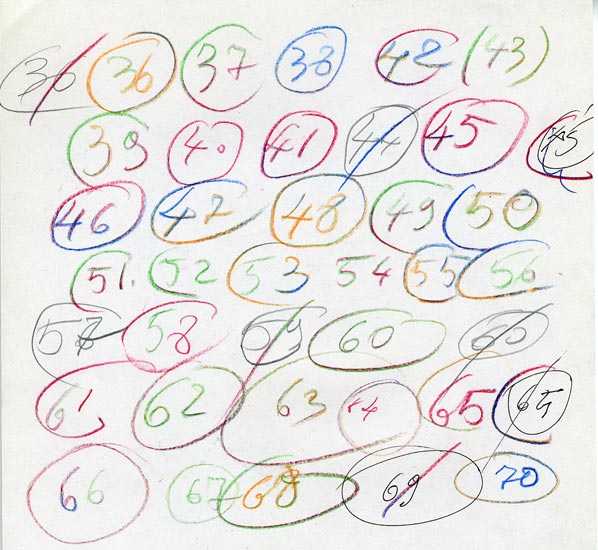 36 36 37 38 42 43
39 40 41 44 45 45
46 47 48 49 50
51. 52 53 54 55 56.
57 58 59 60 60
61 62 63 64 65 65
66 67 68 69 70